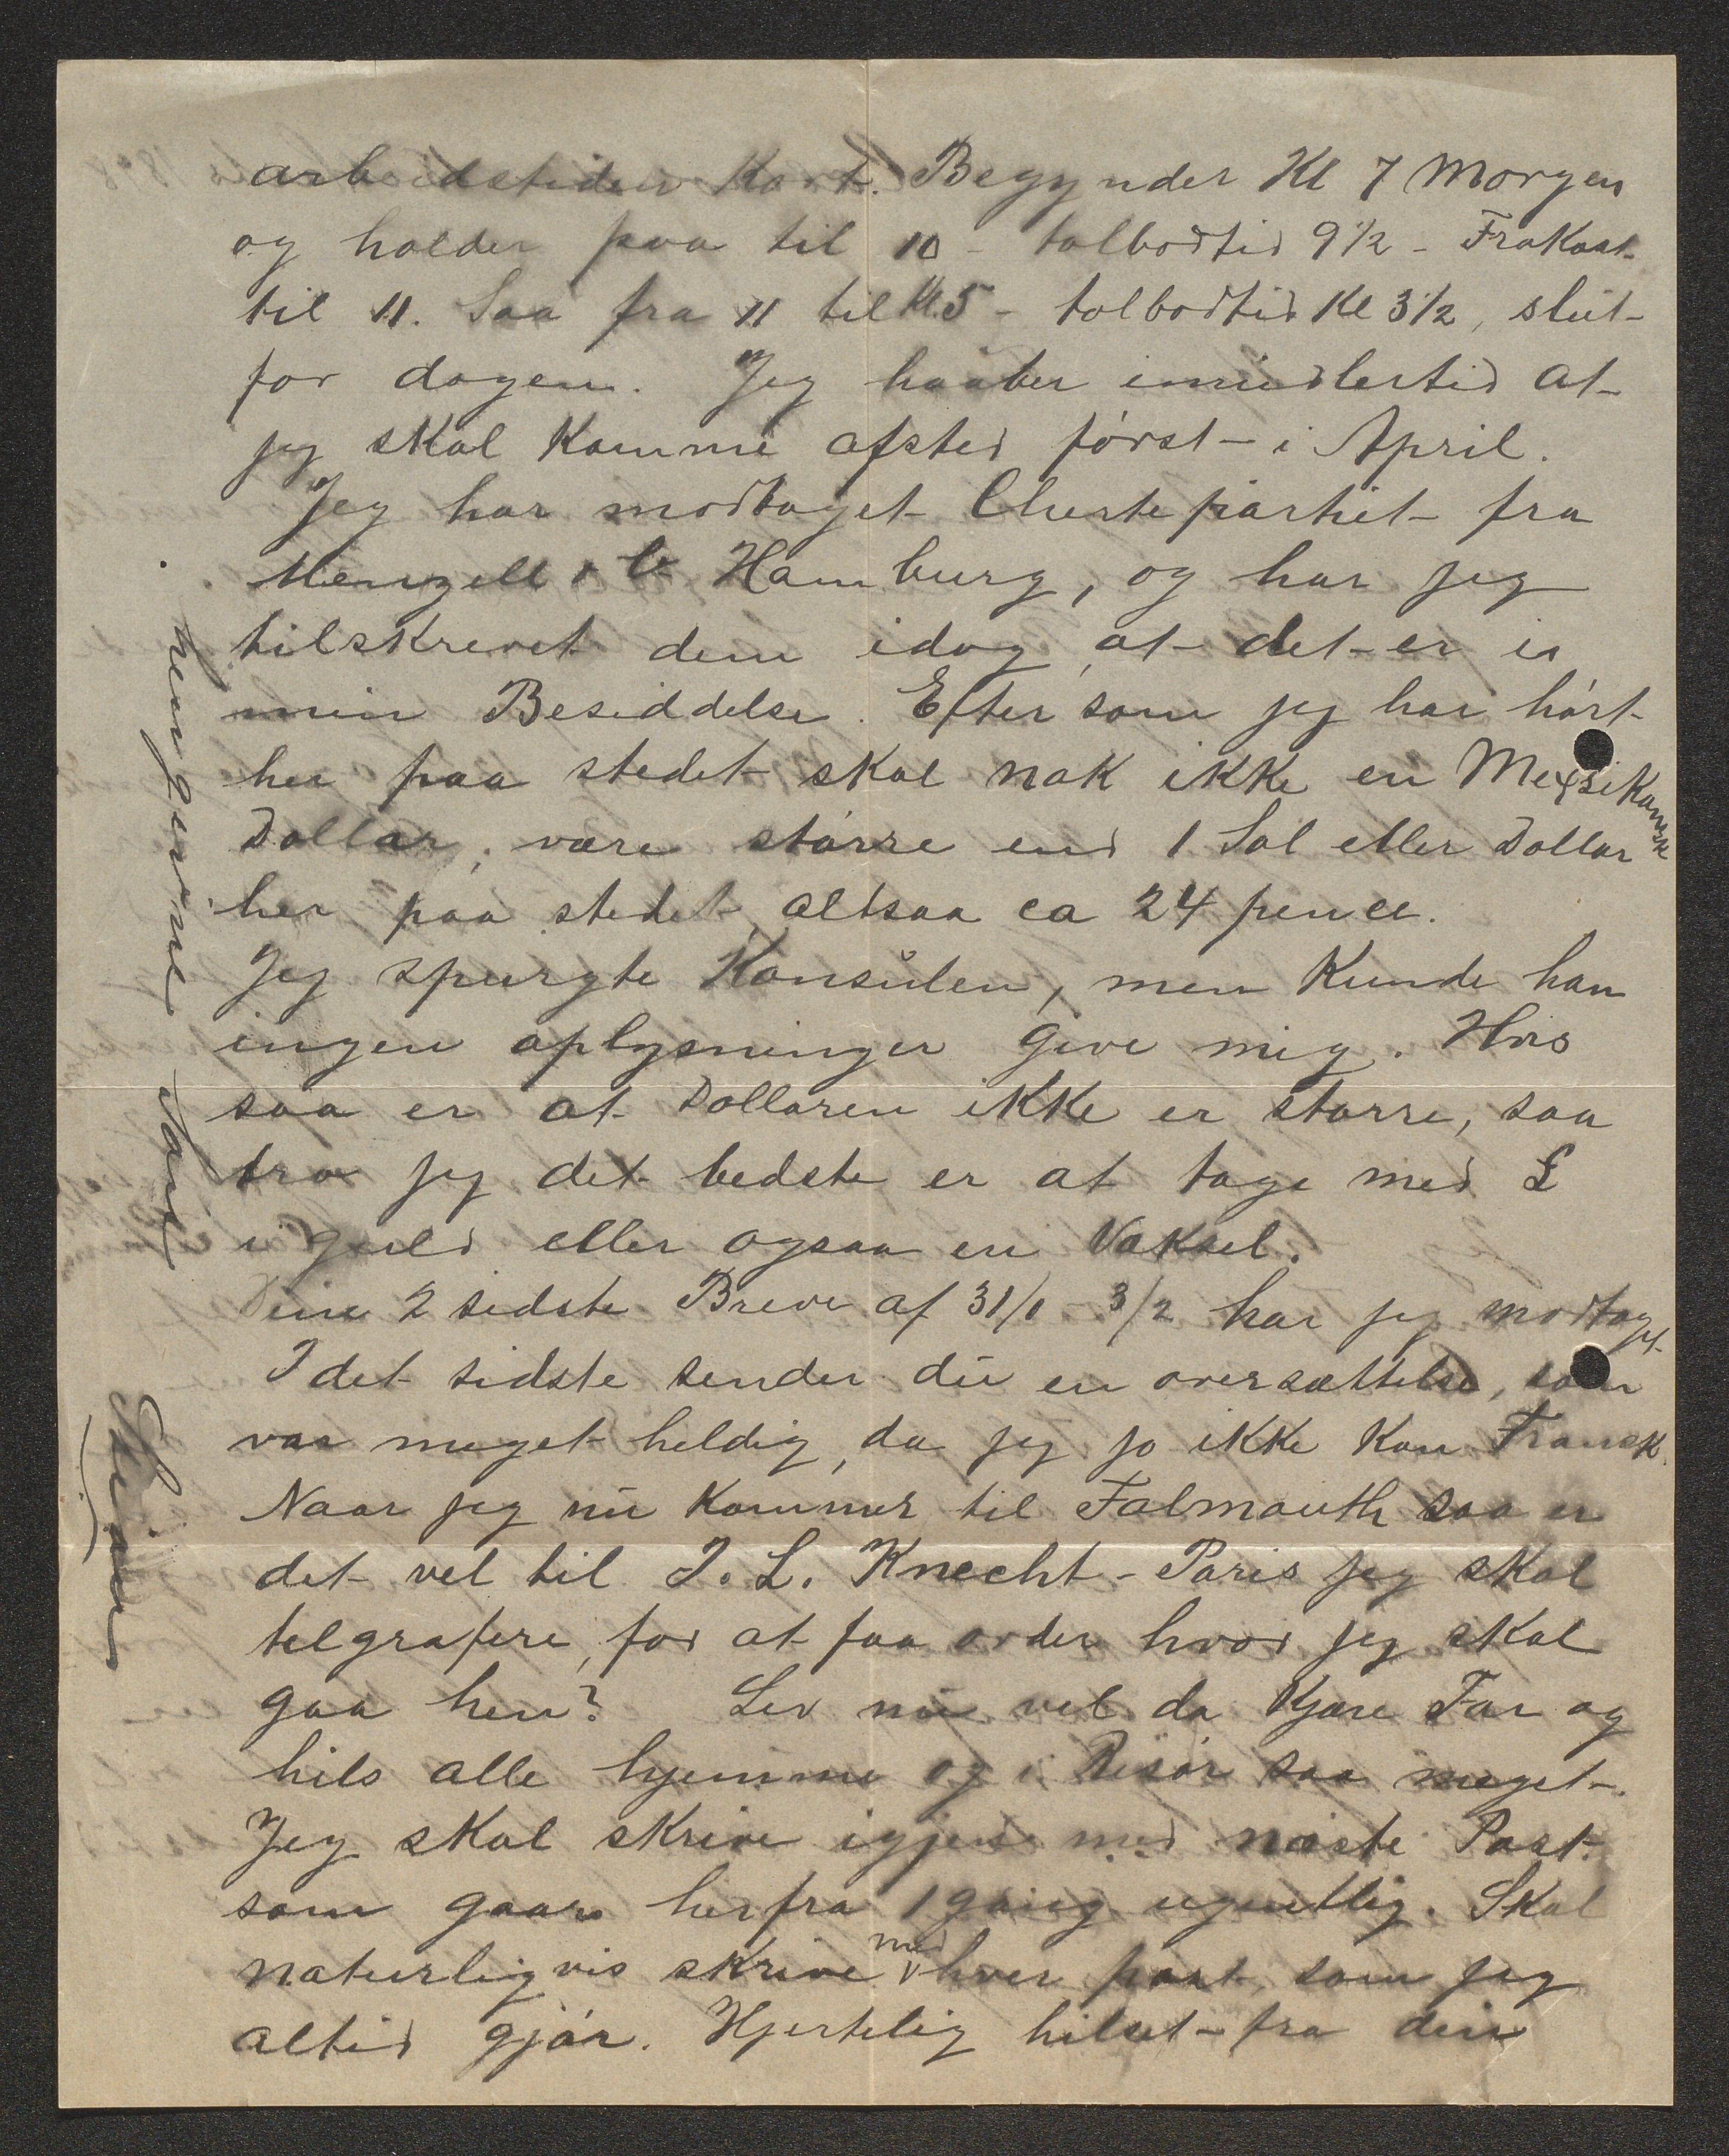 arbeidstiden Kort. Begynder Kl 7 Morgen
og holder paa til 10 - tolbodtid 9 1/2 - Frokost
til 11. Saa fra 11 til Kl. 5 - tolbodtid Kl 3 1/2, slut
for dagen. Jeg haaber imidlertid at
jeg skal Komme afsted först i April.
Jeg har modtaget Chertepartiet fra
Menzell & Co Hamburg, og har jeg
tilskrevet dem idag, at det er i
min Besiddelse. Efter som jeg har hört
her paa stedet skal nok ikke en Mexsikansk
Dollar, være større end 1 Sol eller Dollar
her paa stedet, altsaa ca 24 pence.
Jeg spurgte Konsulen, men Kunde han
ingen oplysninger give mig. Hvis
saa er at Dollaren ikke er større, saa
tror jeg det bedste er at tage med £
i guld eller ogsaa en Væksel.
Dine 2 sidste Breve af 31/1 - 3/2 har jeg modtaget
I det sidste sender du en oversættelse, som
var meget heldig, da jeg jo ikke Kan Fransk.
Naar jeg nu Kommer til Falmouth saa er
det vel til J. L. Knecht - Paris jeg skal
telgrafere, for at faa order hvor jeg skal
gaa hen? Lev nu vel da Kjære Far og
hils alle hjemme og i Risör saa meget.
Jeg skal skrive igjen med næste Post
som gaar herfra 1 gang ugentlig. Skal
naturligvis skrive med hver post, som jeg
altid gjör. Hjertelig hilset fra din
hengivne Sön